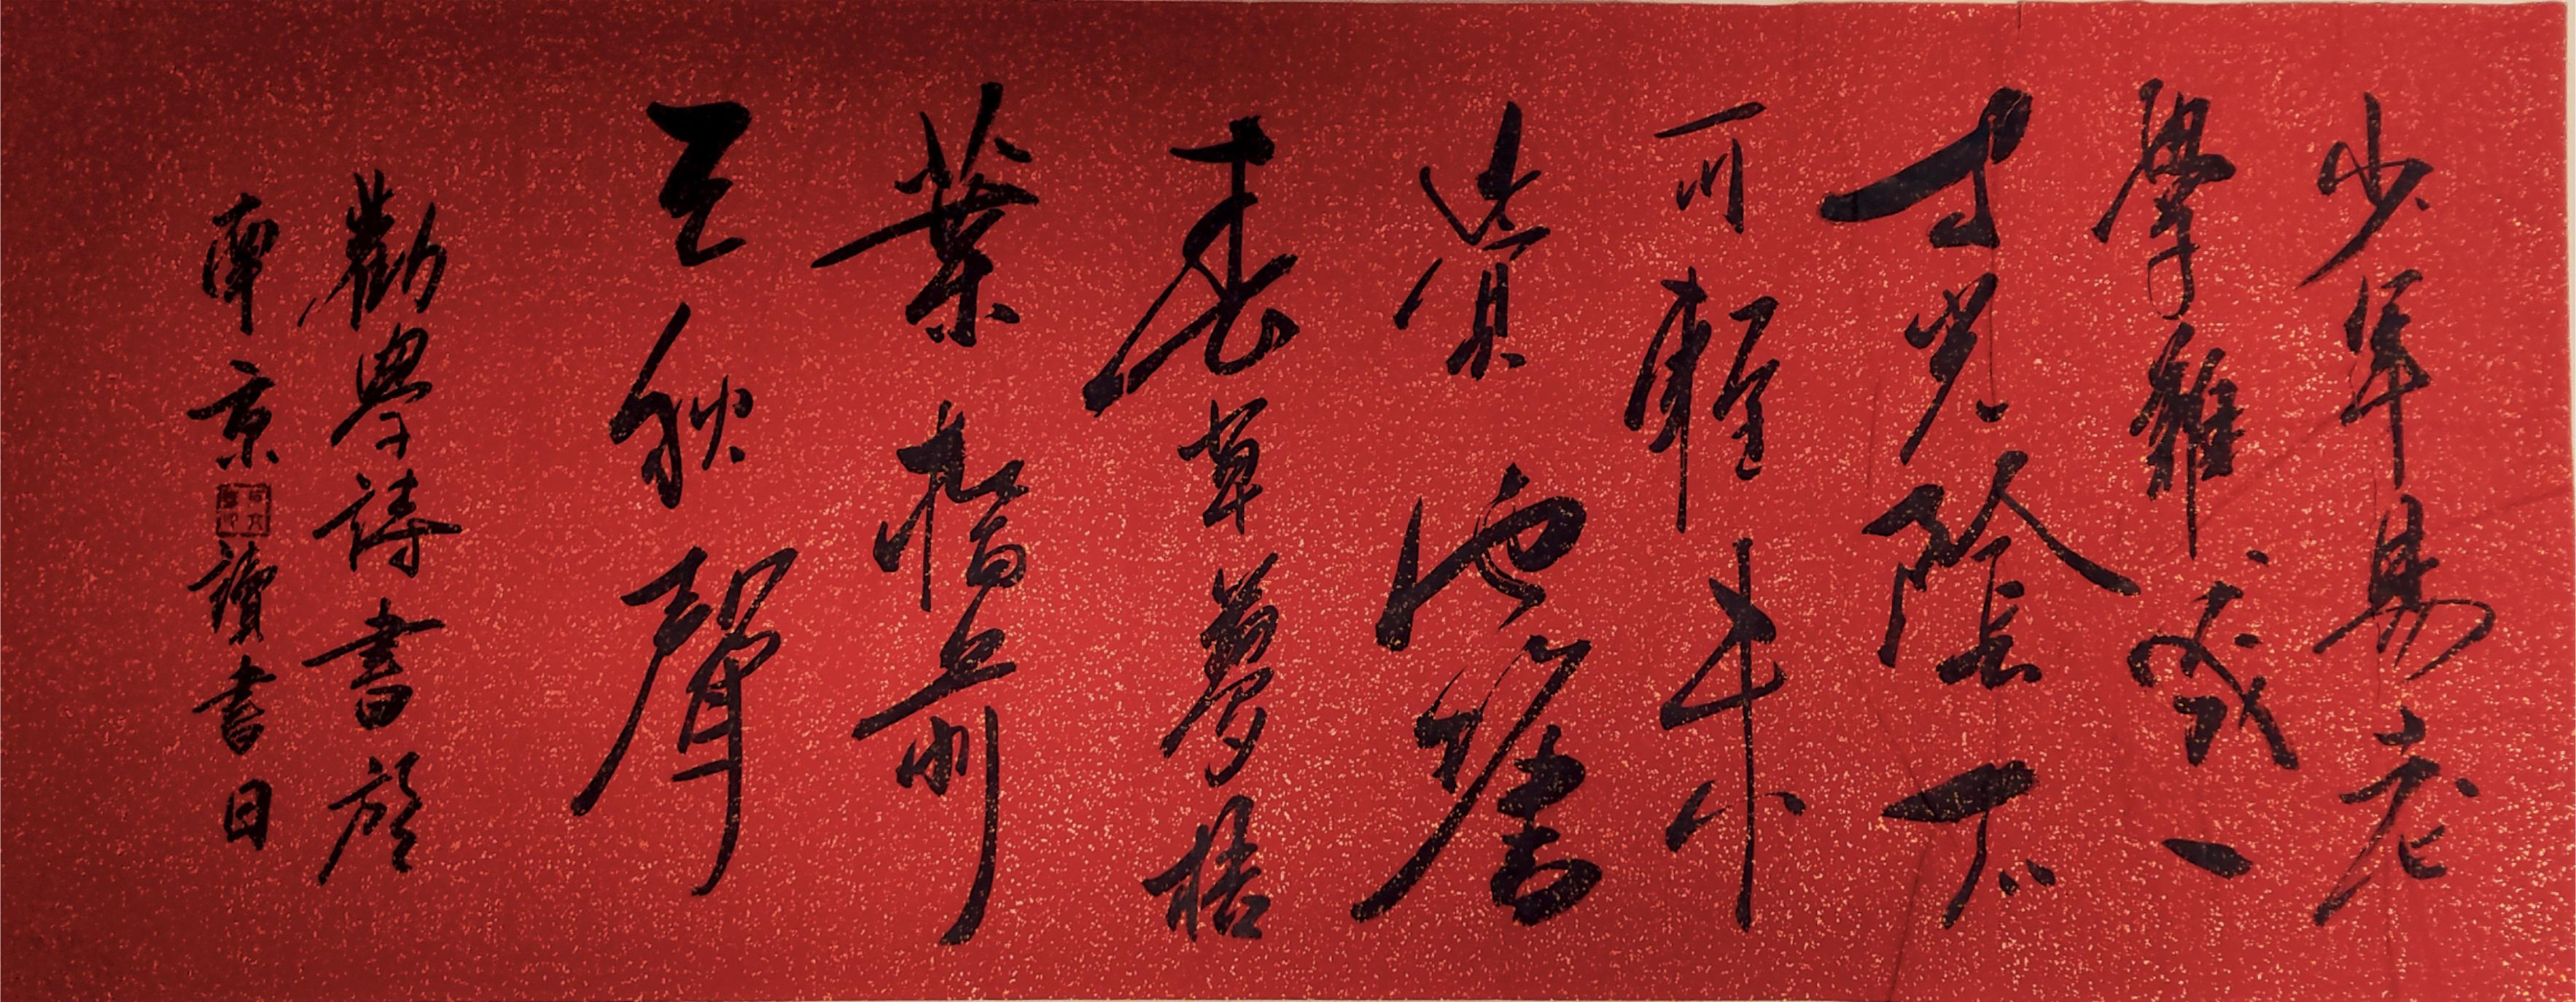 少年易老
學難成一
寸光陰不
可輕未
覺池塘
春草夢梧
葉階前
已秋聲
勸學詩書於
南京讀書日